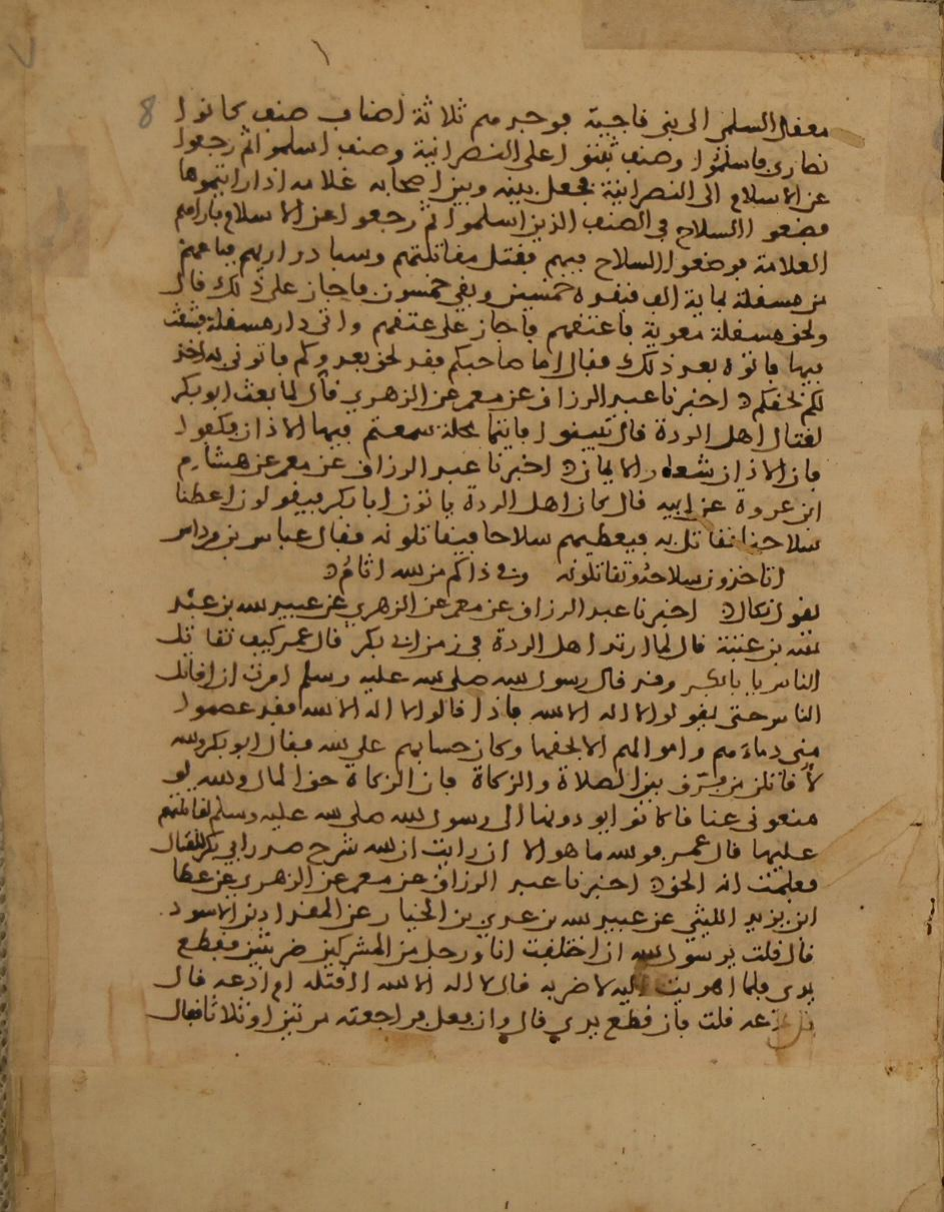 8
معقل السلمي الى بني ناجية فوجدهم ثلاثة اصناف صنف كانوا
نصارى فاسلموا وصنف ثبتوا على النصرانية وصنف اسلموا ثم رجعوا
عن الاسلام الى النصرانية فجعل بينه وبين اصحابه علامة اذا رايتموها
فضعوا السلاح في الصنف الذين اسلموا ثم رجعوا عن الاسلام فاراهم
العلامة فوضعوا السلاح فيهم فقتل مقاتلتهم وسبا ذراريهم فباعهم
من مسقلة بماية الف فنقده خمسين وبقي خمسون فاجاز علي ذلك قال
ولحق مسقلة معوية فاعتقهم فاجاز علي عتقهم واتى دار مسقلة فشعث
فيها فاتوه بعد ذلك فقال اما صاحبكم فقد لحق بعدوكم فاتوني به اخذ
لكم بحقكم اخبرنا عبد الرزاق عن معمر عن الزهري قال لما بعث ابو بكر
لقتال اهل الردة قال تبينوا فايما محلة سمعتم فيها الاذان فكفوا
فان الاذان شعار الايمان اخبرنا عبد الرزاق عن معمر عن هشام
ابن عروة عن ابيه قال كان اهل الردة ياتون ابا بكر فيقولون اعطنا
سلاحا نقاتل به فيعطيهم سلاحا فيقاتلونه فقال عباس بن مرداس
اتاخذون سلاحه وتقاتلونه وفي ذاكم من الله اثام
يقول نكال اخبرنا عبد الرزاق عن معمر عن الزهري عن عبيد الله بن عبد
الله بن عتبة قال لما ارتد اهل الردة في زمن ابي بكر قال عمر كيف تقاتل
الناس يا بابكر وقد قال رسول الله صلى الله عليه وسلم امرت ان اقاتل
الناس حتى يقولوا لا اله الا الله فاذا قالوا لا اله الا الله فقد عصموا
مني دماءهم واموالهم الا بحقها وكان حسابهم على الله فقال ابو بكر والله
لأقاتلن من فرق بين الصلاة والزكاة فان الزكاة حق المال والله لو
منعوني عناقا كانوا يودونها الى رسول الله صلى الله عليه وسلم لقاتلتهم
عليها قال عمر فوالله ما هو الا ان رايت ان الله شرح صدر ابي بكر للقتال
فعلمت انه الحق اخبرنا عبد الرزاق عن معمر عن الزهري عن عطا
ابن يزيد الليثي عن عبيد الله بن عدي بن الخيار عن المقداد بن الاسود
قال قلت يرسول الله ان اختلفت انا ورجل من المشركين ضربتين فقطع
يدي فلما اهويت اليه لاضربه قال لا اله الا الله ااقتله ام ادعه قال
بل تدعه قلت فان قطع يدي قال وان فعل فراجعته مرتين او ثلاثا فقال